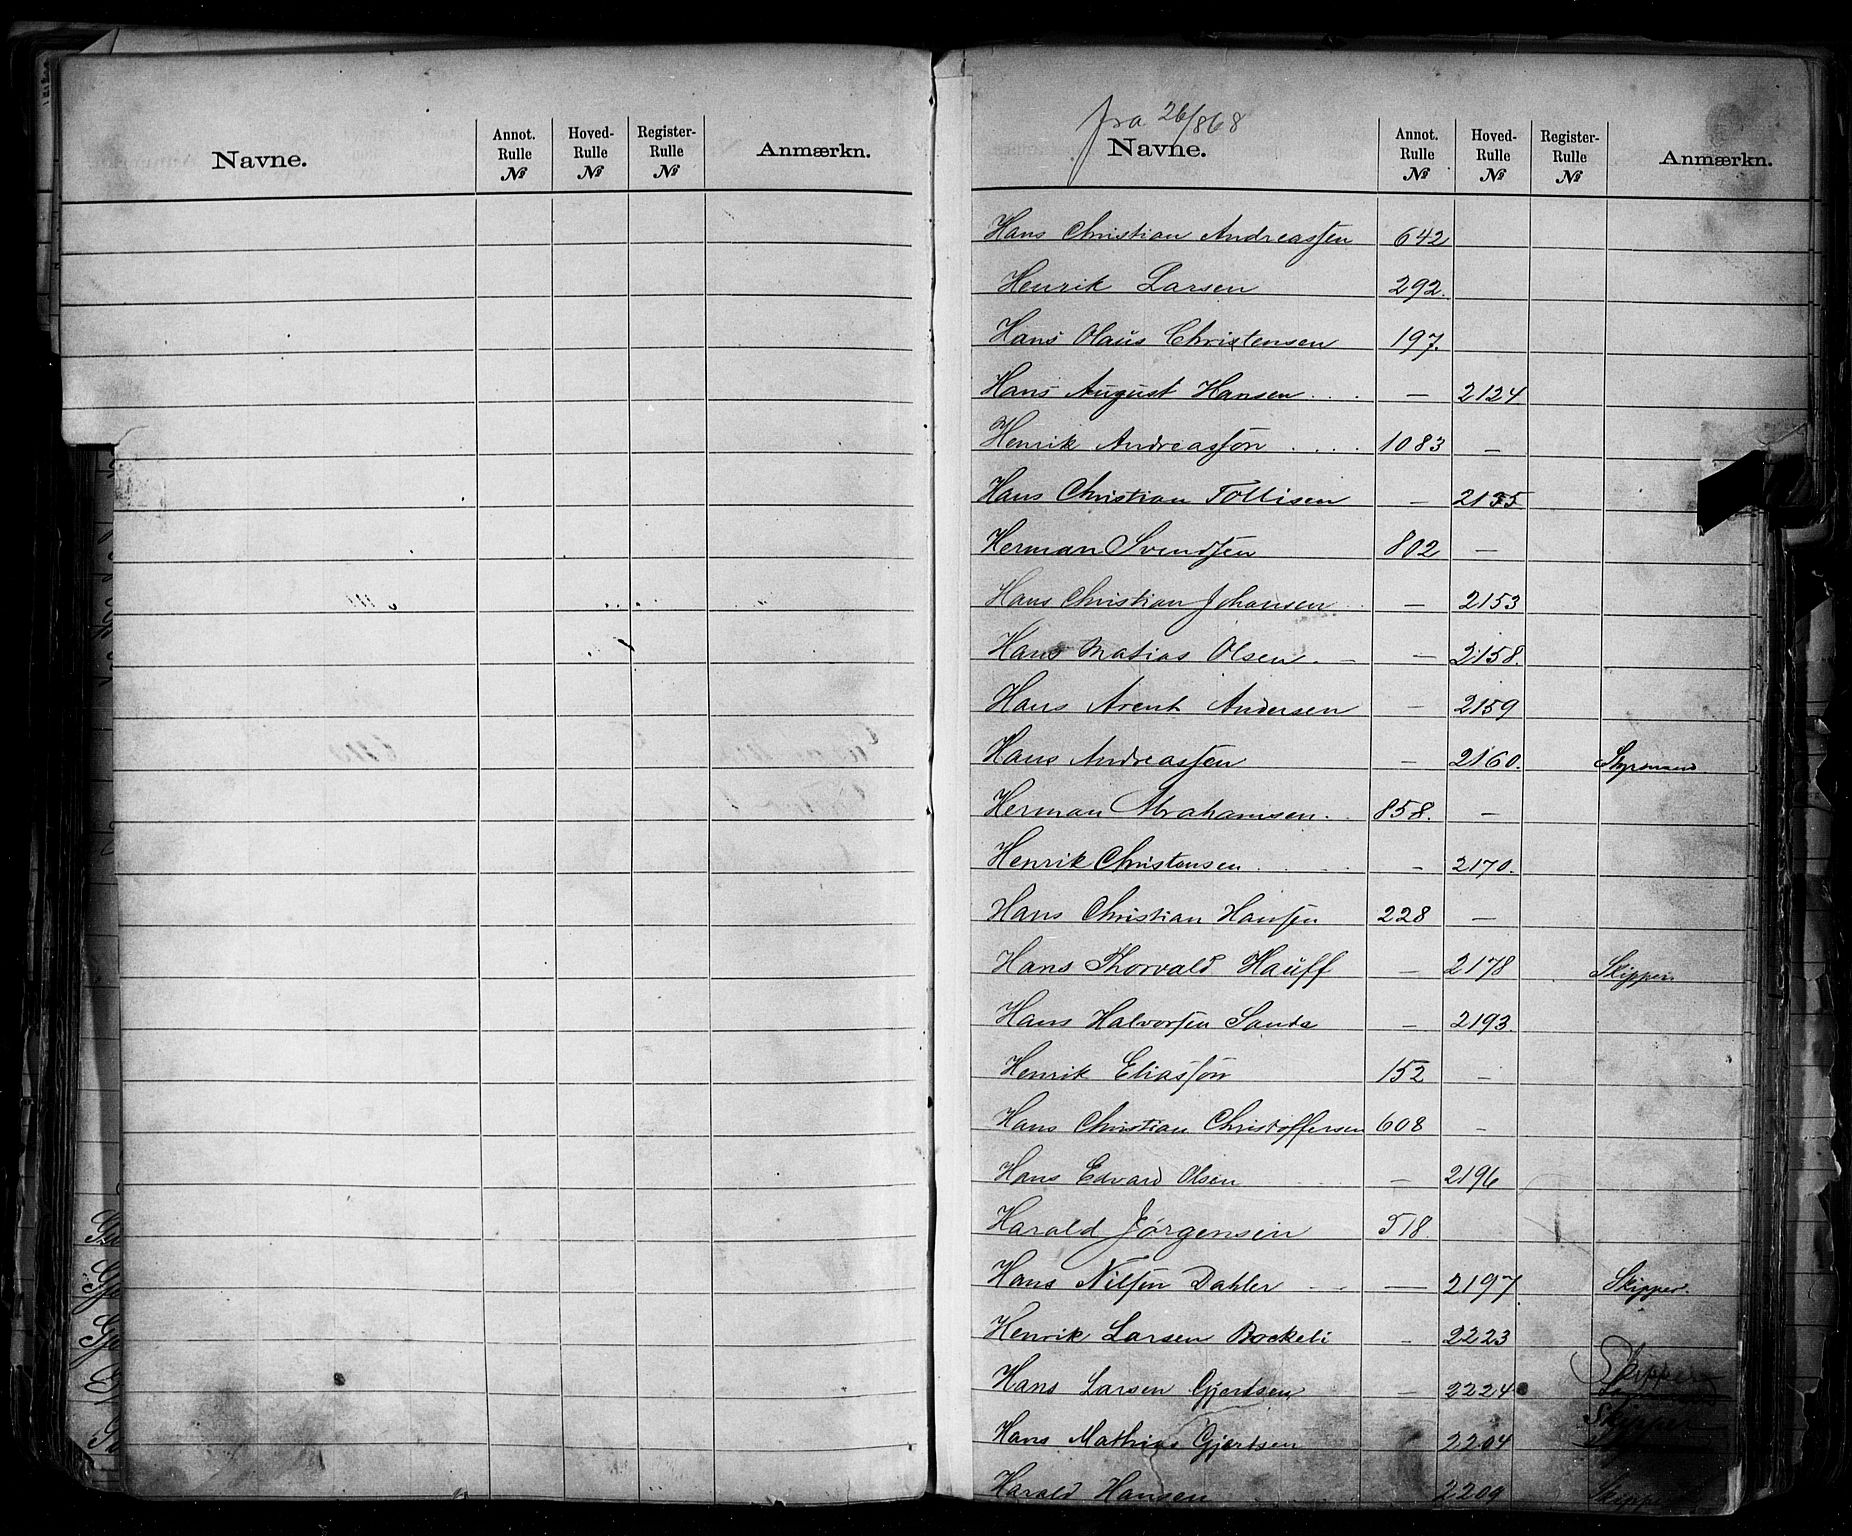 Navne. Annot. Rulle № Hoved- Rulle № Register- Rulle № Anmærkn.
fra 26/868
Navne. Annot. Rulle № Hoved- Rulle № Register- Rulle № Anmærkn.
Hans Christian Andreassen 642
Henrik Larsen 292.
Hans Olaus Christensen 197.
Hans August Hansen . . . — 2124
Henrik Andreassön . . . . 1083 —
Hans Christian Tollisen — 2135
Herman Svendsen 802 —
Hans Christian Johansen — 2153
Hans Matias Olsen. — — 2158.
Hans Arent Andersen — 2159
Hans Andreassen — 2160. Styrmand
Herman Abrahamsen. . 858. —
Henrik Christensen . . . . — 2170.
Hans Christian Hansen 228 —
Hans Thorvald Hauff — 2178 Skipper.
Hans Halvorsen Sande — 2193.
Henrik Eliassön 152 —
Hans Christian Christoffersen 608 —
Hans Edvard Olsen — 2196
Harald Jörgensen 518.
Hans Nilsen Dahler — — 2197. Skipper.
Henrik Larsen Bockeli — 2223
Hans Larsen Gjertsen — 2224 Skipper
Hans Mathias Gjertsen 2204 Skipper
Harald Hansen 2209 Skipper